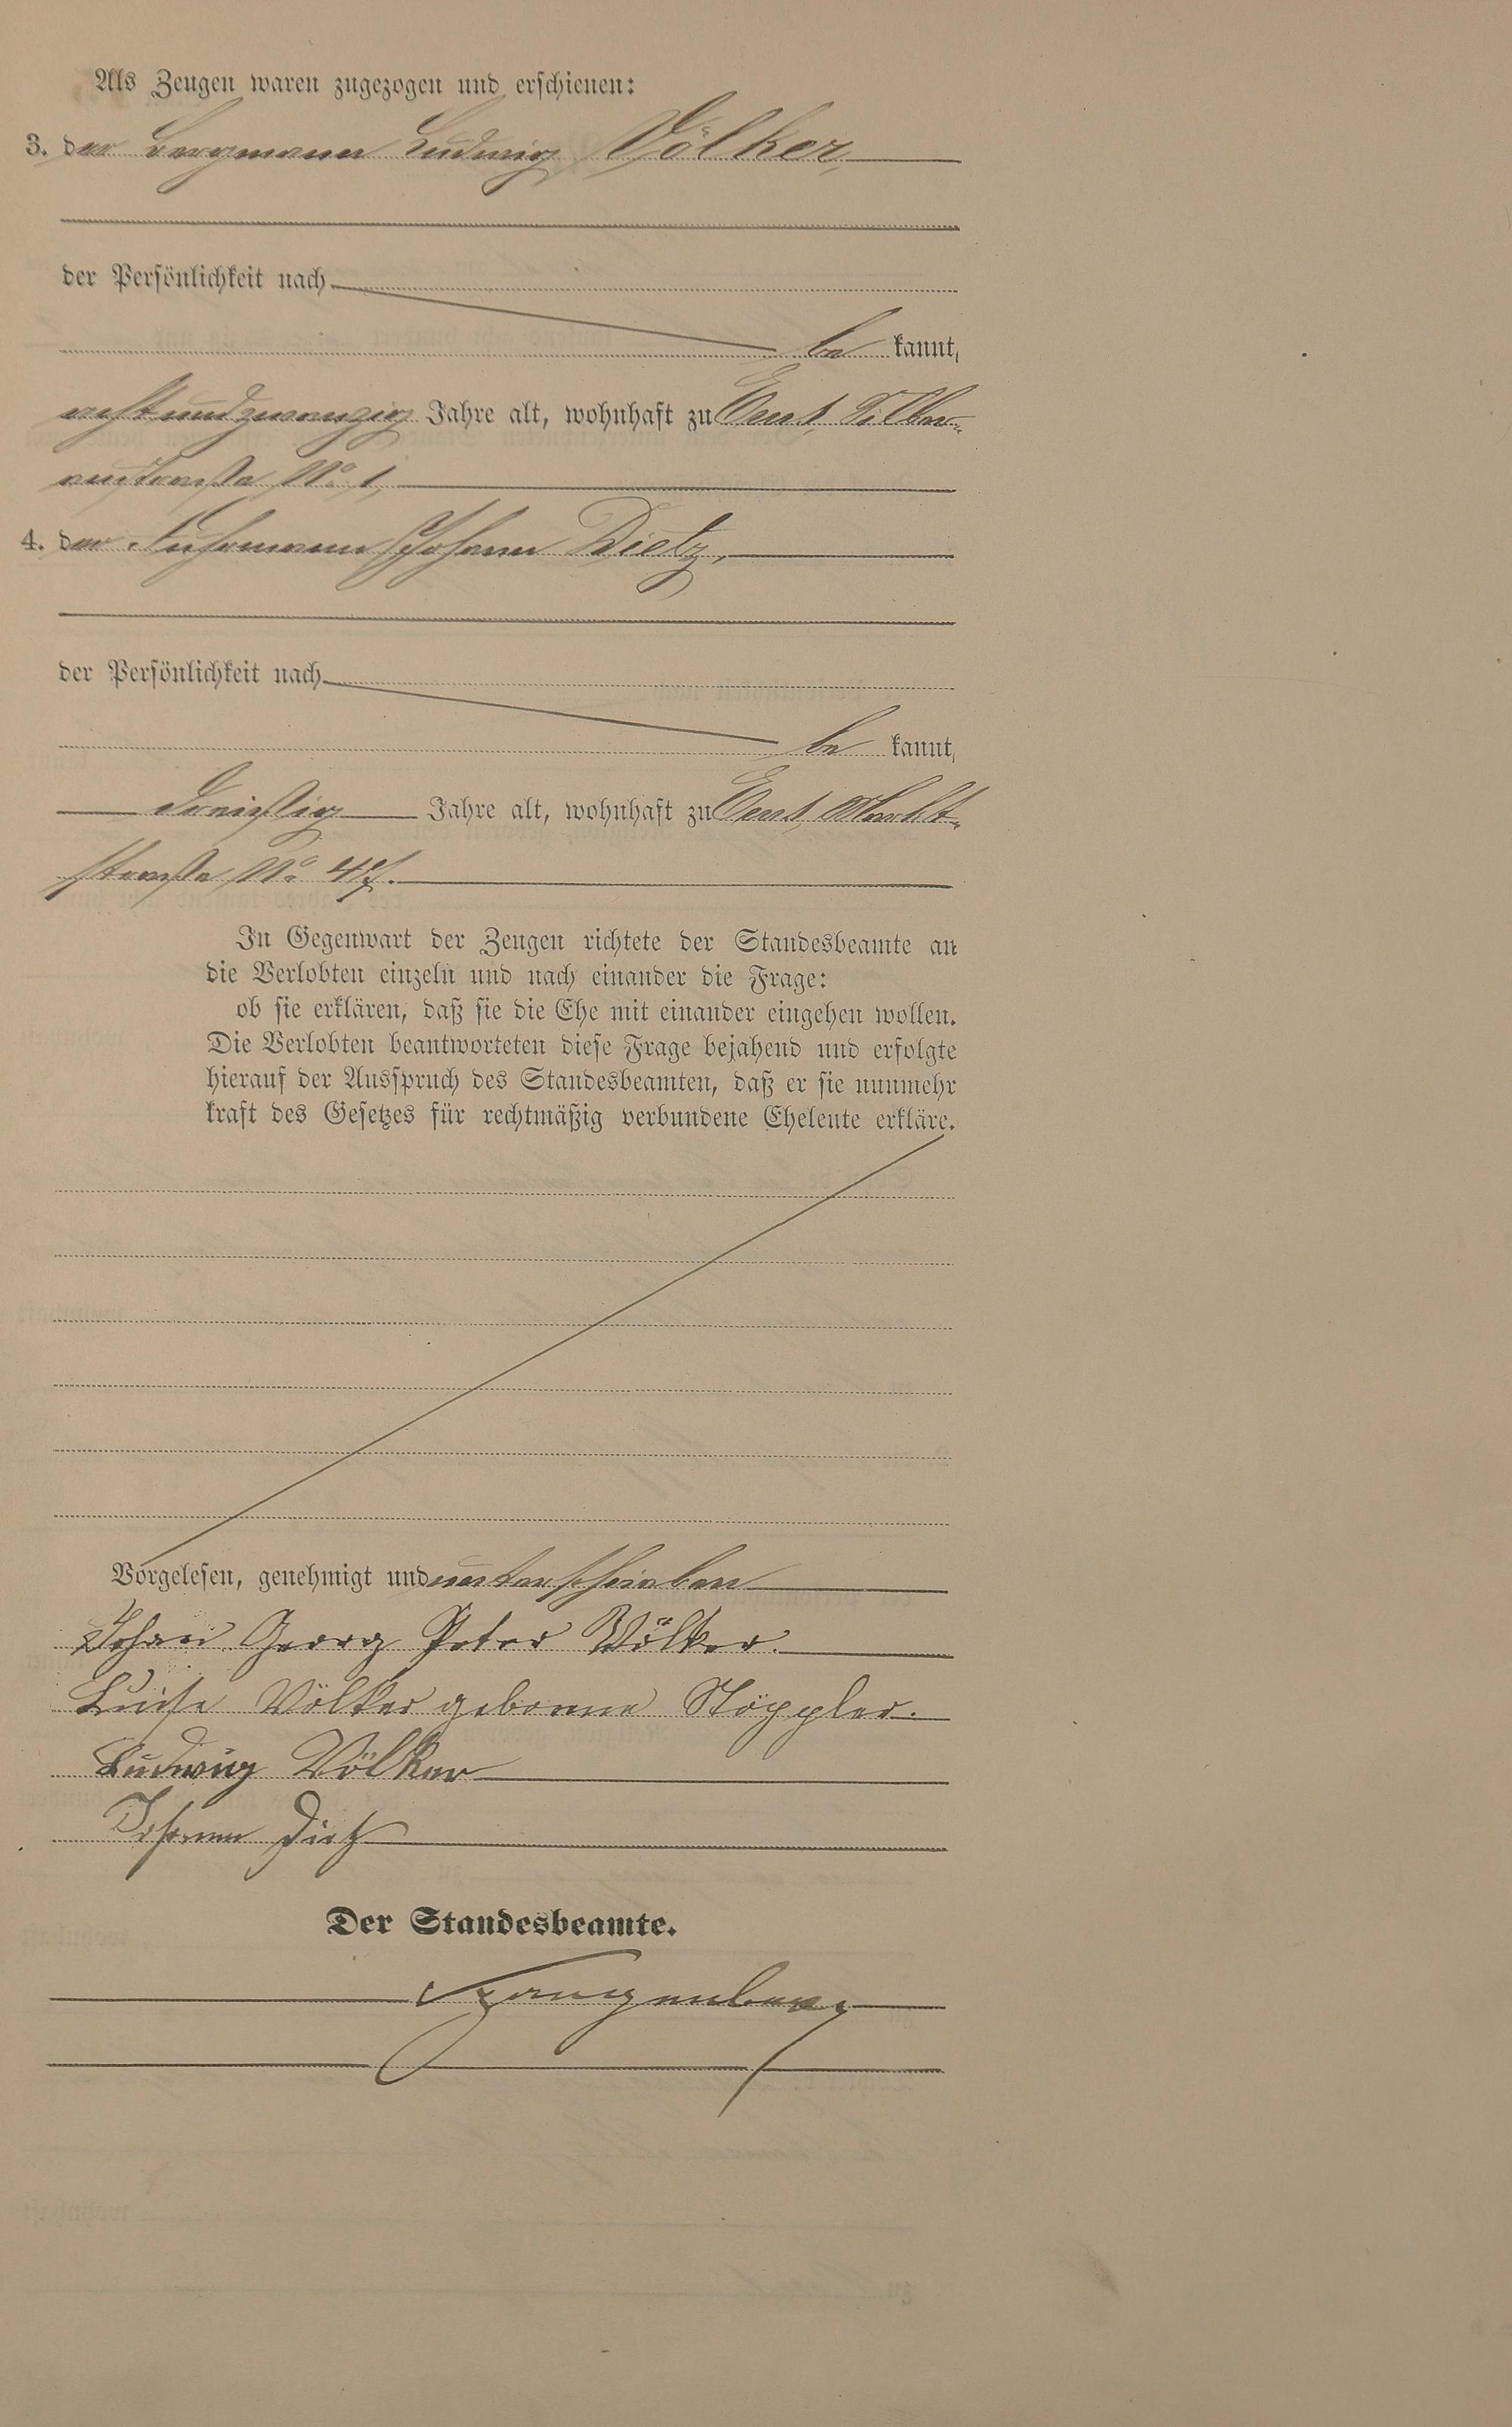 Als Zeugen waren zugezogen und erschienen:
3. der Bergmann Ludwig Völker,
der Persönlichkeit nach
be kannt,
achtundzwanzig Jahre alt, wohnhaft zu Ems, Silber-
austraße No. 1,
4. der Fuhrmann Johann Dietz,
der Persönlichkeit nach
be kannt,
dreißig Jahre alt, wohnhaft zu Ems, Markt-
straße No. 47.
In Gegenwart der Zeugen richtete der Standesbeamte an
die Verlobten einzeln und nach einander die Frage:
ob sie erklären, daß sie die Ehe mit einander eingehen wollen.
Die Verlobten beantworteten diese Frage bejahend und erfolgte
hierauf der Ausspruch des Standesbeamten, daß er sie nunmehr
kraft des Gesetzes für rechtmäßig verbundene Eheleute erkläre.
Vorgelesen, genehmigt und unterschrieben
Johann Georg Peter Völker.
Luise Völker geborene Stöppler.
Ludwig Völker
Johann Dietz
Der Standesbeamte.